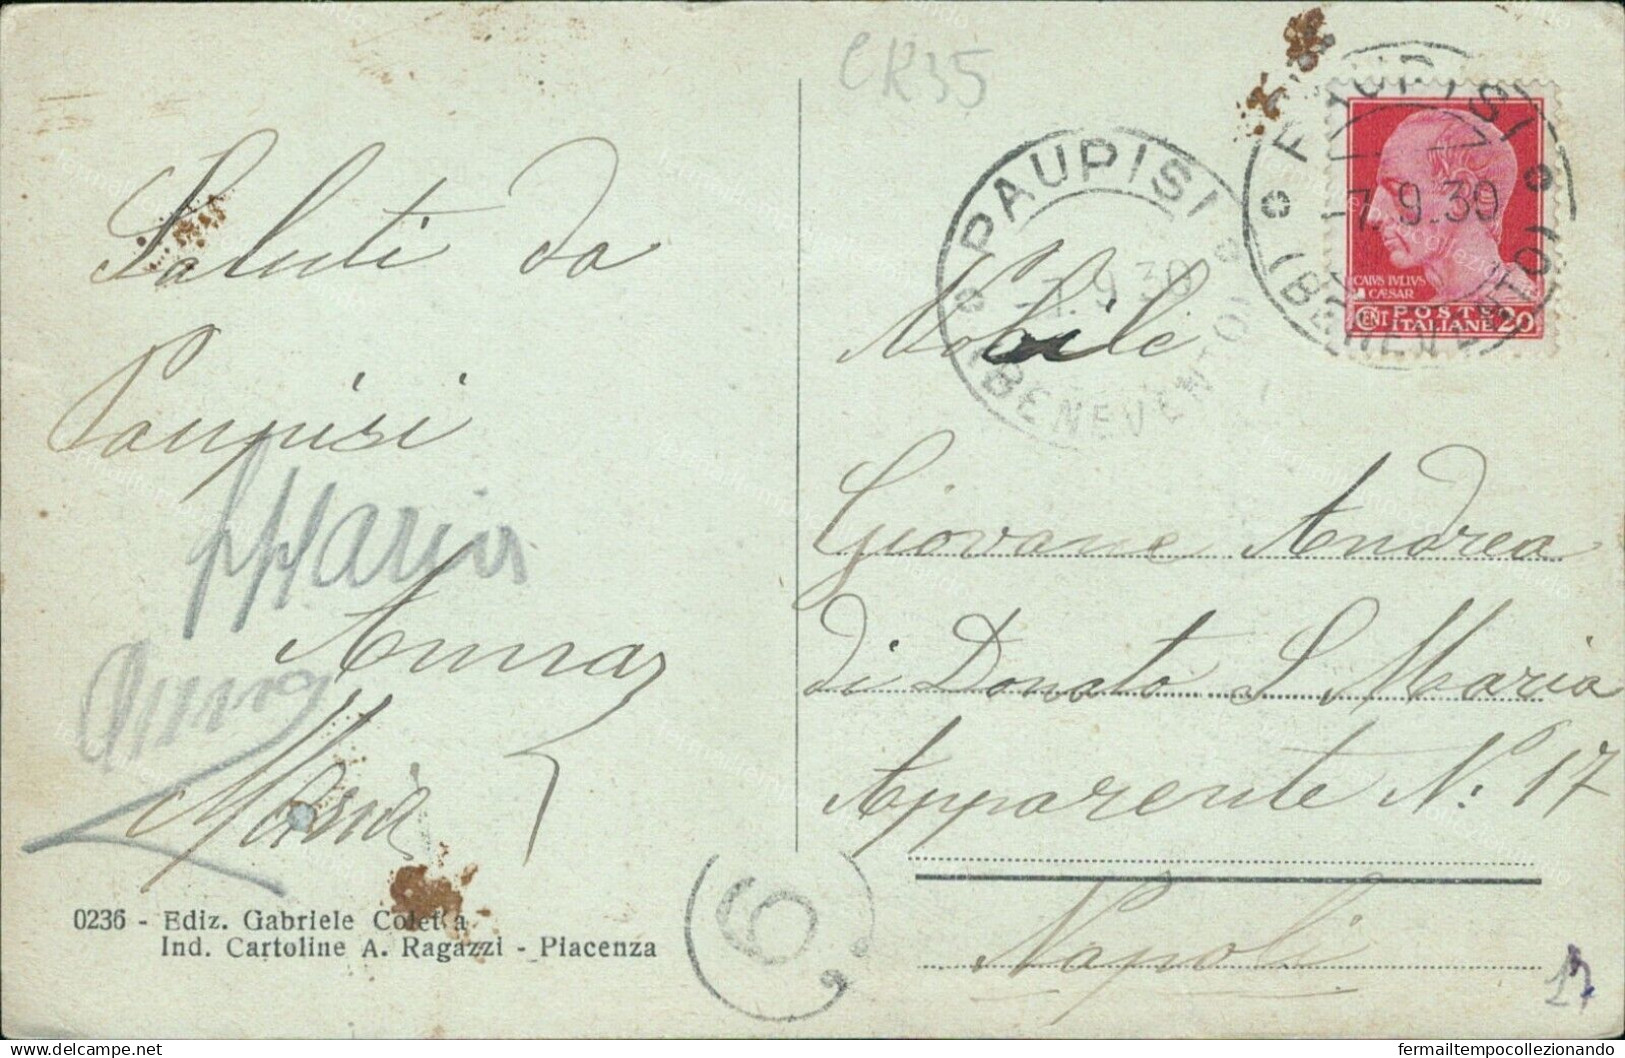 CK35
PAUPISI
-7.9.39
(BENEVENTO)
PAUPISI
-7.9.39
(BENEVENTO)
CAIVS IVLIVS
CÆSAR
CENT POSTE ITALIANE 20
Saluti da
Paupisi
Maria
Anna
Anna
Maria
0236 - Ediz. Gabriele Coletta
Ind. Cartoline A. Ragazzi - Piacenza
6
Nobile
Giovane Andrea
di Donato S. Maria
Apparente N: 17
Napoli
delcampe.net
fermailtempocollezionando